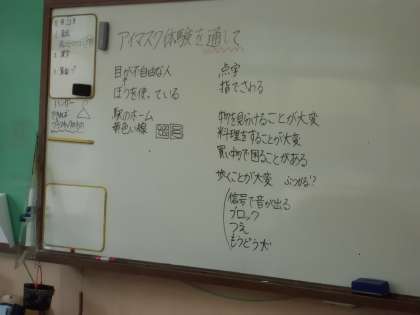 アイマスク体験を通して
目が不自由な人
ぼうを使っている
駅のホーム
黄色い線
点字
指でさわる
物を見つけることが大変
料理をすることが大変
買い物で困ることがある
歩くことが大変 ぶつかる?
信号で音が出る
ブロック
つえ
もうどう犬